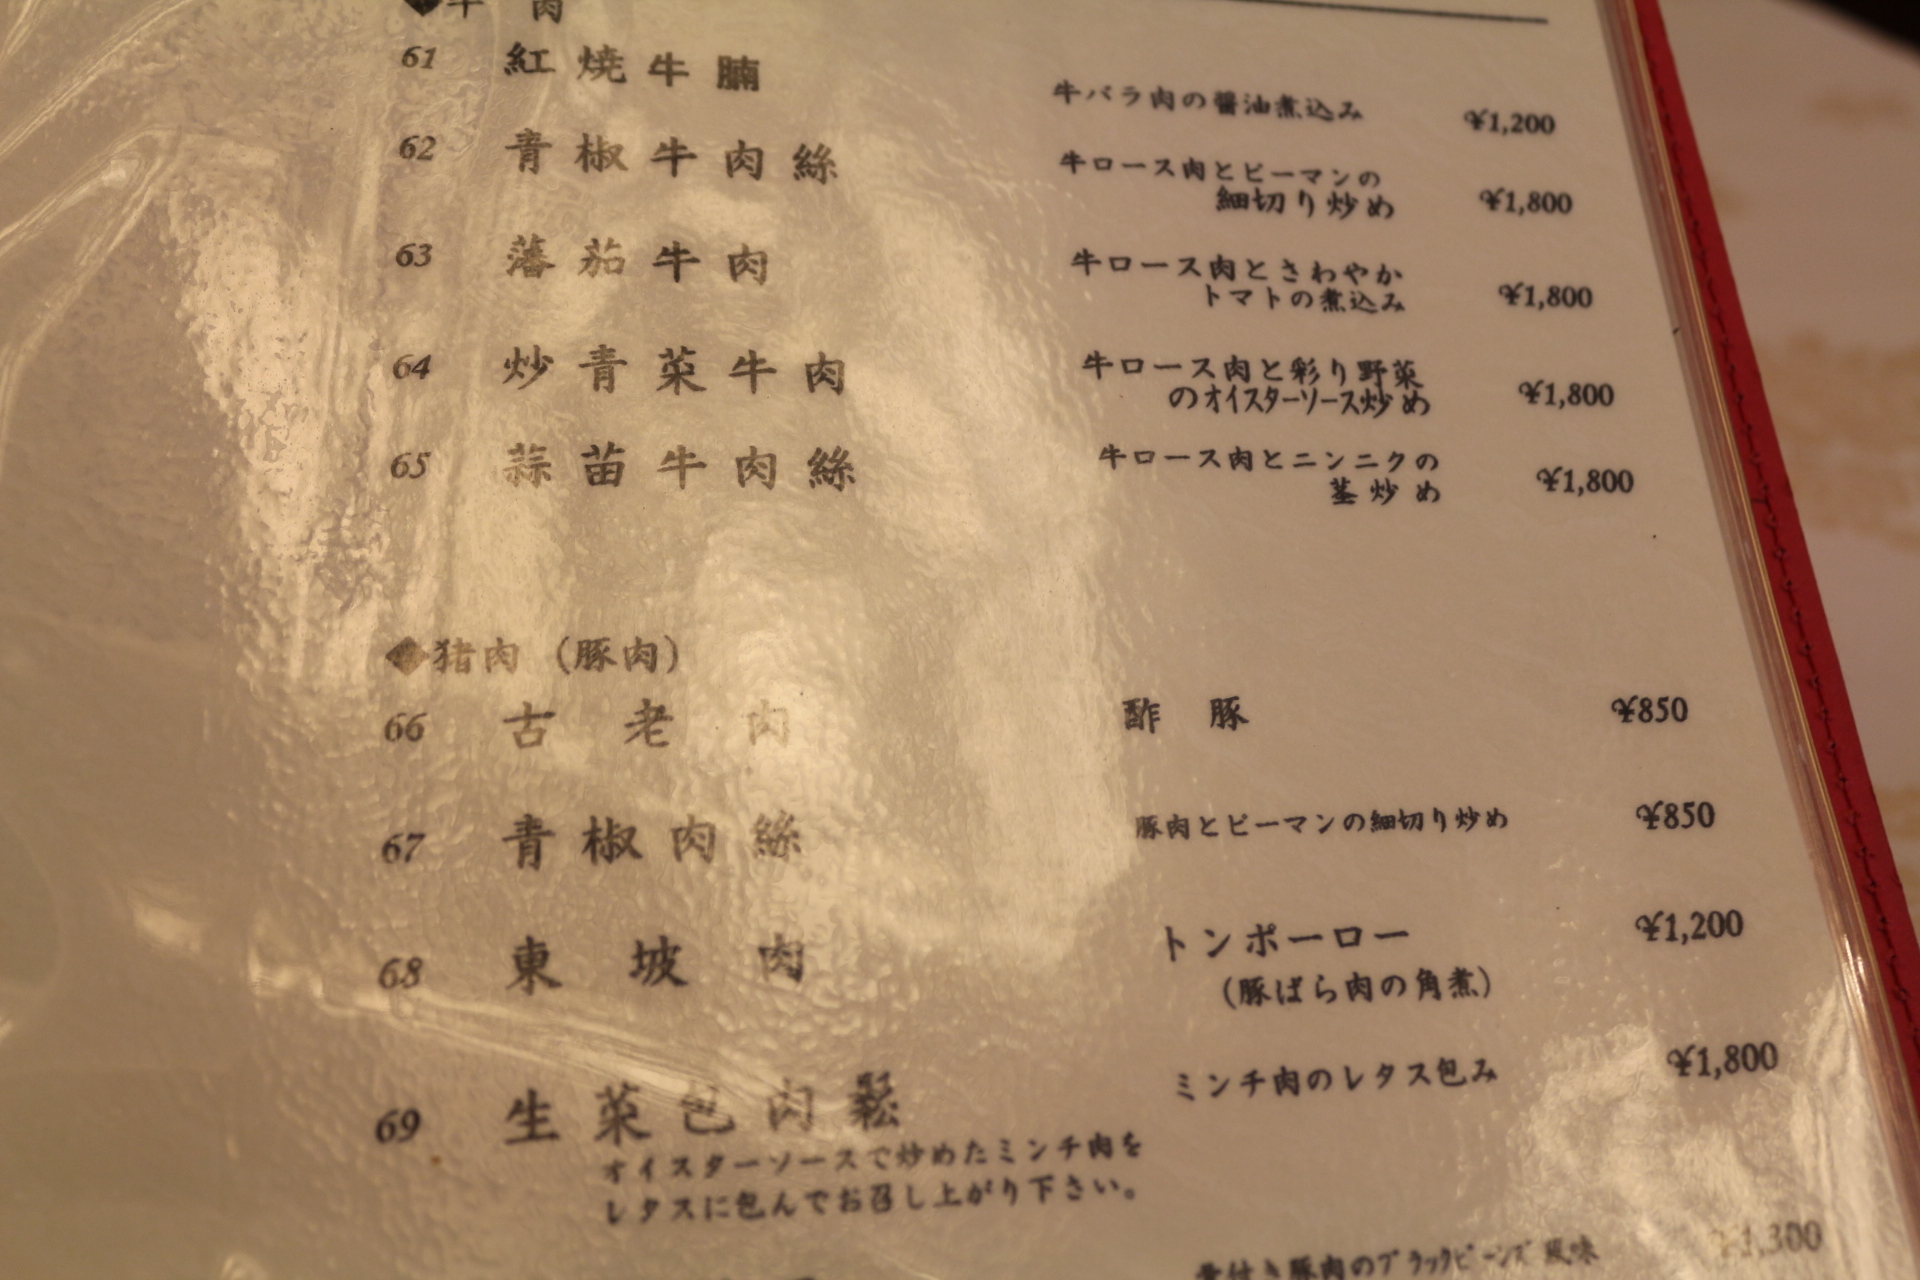 ◆牛肉
61 紅焼牛腩 牛バラ肉の醬油煮込み ¥1,200
62 青椒牛肉絲 牛ロース肉とピーマンの
細切り炒め ¥1,800
63 蕃茄牛肉 牛ロース肉とさわやか
トマトの煮込み ¥1,800
64 炒青菜牛肉 牛ロース肉と彩り野菜
のオイスターソース炒め ¥1,800
65 蒜苗牛肉絲 牛ロース肉とニンニクの
茎炒め ¥1,800
◆猪肉（豚肉）
66 古老肉 酢豚 ¥850
67 青椒肉絲 豚肉とピーマンの細切り炒め ¥850
68 東坡肉 トンポーロー ¥1,200
（豚ばら肉の角煮）
69 生菜包肉鬆 ミンチ肉のレタス包み ¥1,800
オイスターソースで炒めたミンチ肉を
レタスに包んでお召し上がり下さい。
骨付き豚肉のブラックビーンズ風味 ¥1,300